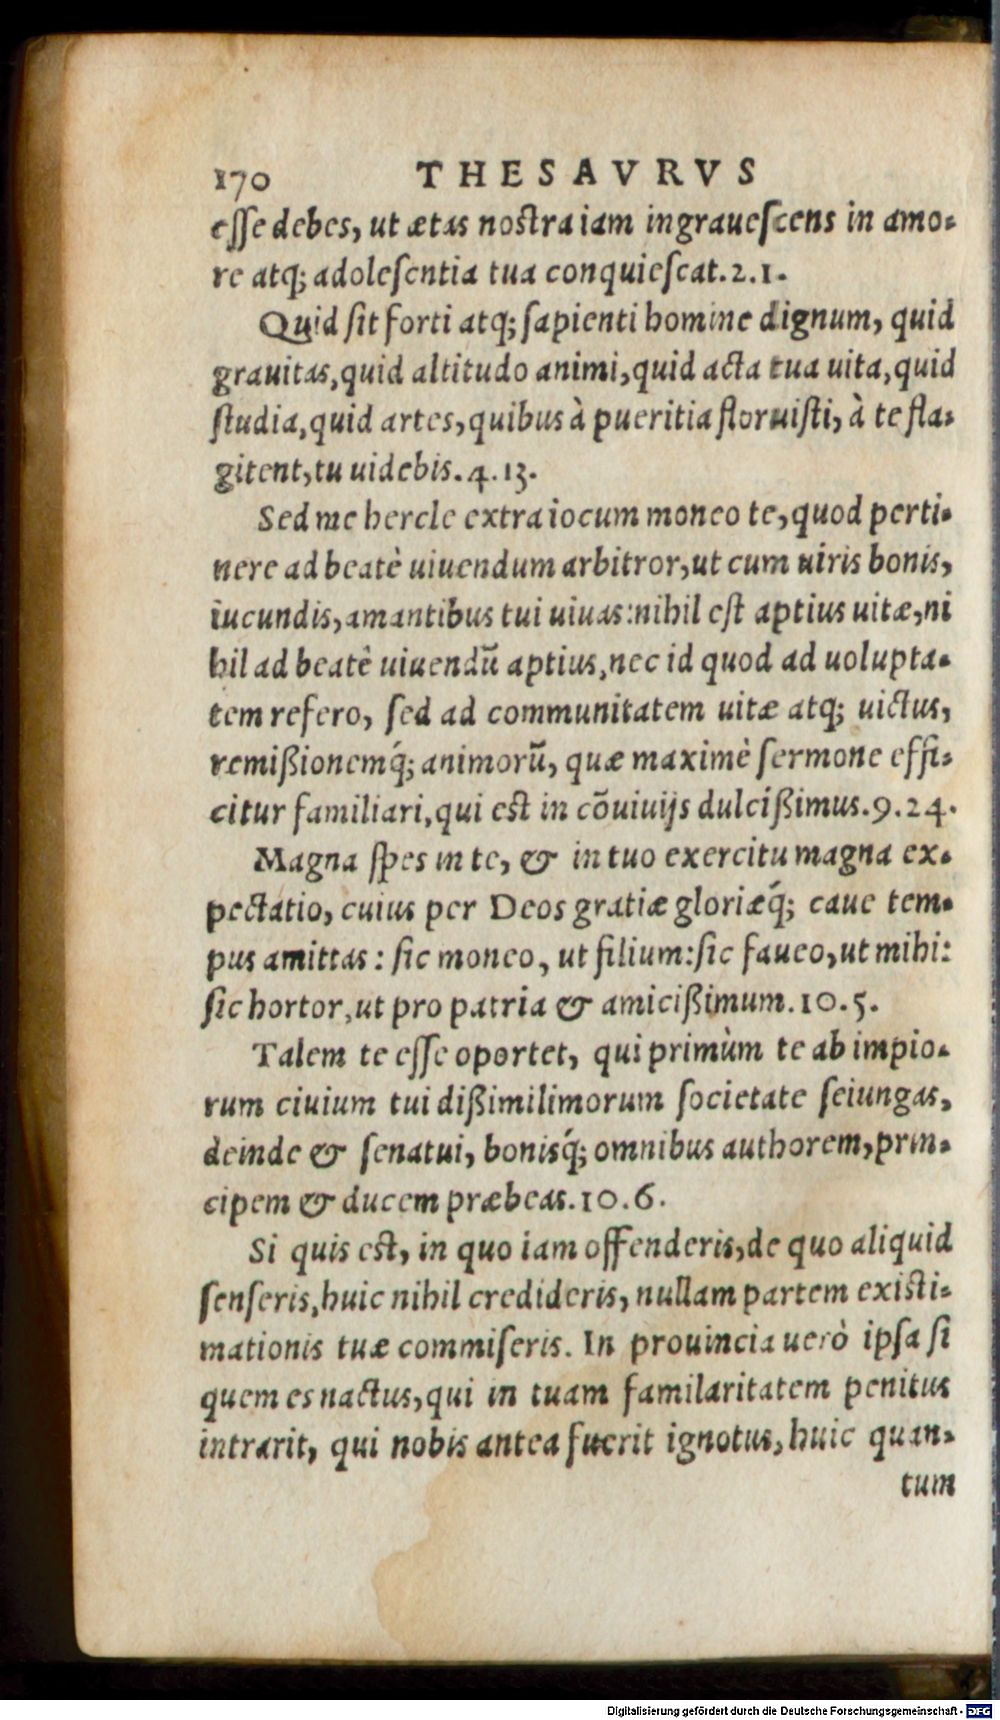 170 THESAVRVS
eſſe debes, ut ætas noſtra iam ingraueſcens in amo-
re atq; adoleſcentia tua conquieſcat.2.1.
Quid ſit forti atq; ſapienti homine dignum, quid
grauitas, quid altitudo animi, quid acta tua uita, quid
ſtudia, quid artes, quibus à pueritia floruiſti, à te fla-
gitent, tu uidebis.4.13.
Sed me hercle extra iocum moneo te, quod perti-
nere ad beatè uiuendum arbitror, ut cum uiris bonis,
iucundis, amantibus tui uiuas: nihil eſt aptius uitæ, ni
hil ad beatè uiuendū aptius, nec id quod ad uolupta-
tem refero, ſed ad communitatem uitæ atq; uictus,
remißionemq́; animorū, quæ maximè ſermone effi-
citur familiari, qui eſt in cōuiuijs dulcißimus.9.24.
Magna ſpes in te, & in tuo exercitu magna ex-
pectatio, cuius per Deos gratiæ gloriæq́; caue tem-
pus amittas: ſic moneo, ut filium: ſic faueo, ut mihi:
ſic hortor, ut pro patria & amicißimum.10.5.
Talem te eſſe oportet, qui primùm te ab impio-
rum ciuium tui dißimilimorum ſocietate ſeiungas,
deinde & ſenatui, bonisq́; omnibus authorem, prin-
cipem & ducem præbeas.10.6.
Si quis eſt, in quo iam offenderis, de quo aliquid
ſenſeris, huic nihil credideris, nullam partem exiſti-
mationis tuæ commiſeris. In prouincia uerò ipſa ſi
quem es nactus, qui in tuam familaritatem penitus
intrarit, qui nobis antea fuerit ignotus, huic quan-
tum
Digitalisierung gefördert durch die Deutsche Forschungsgemeinschaft - DFG